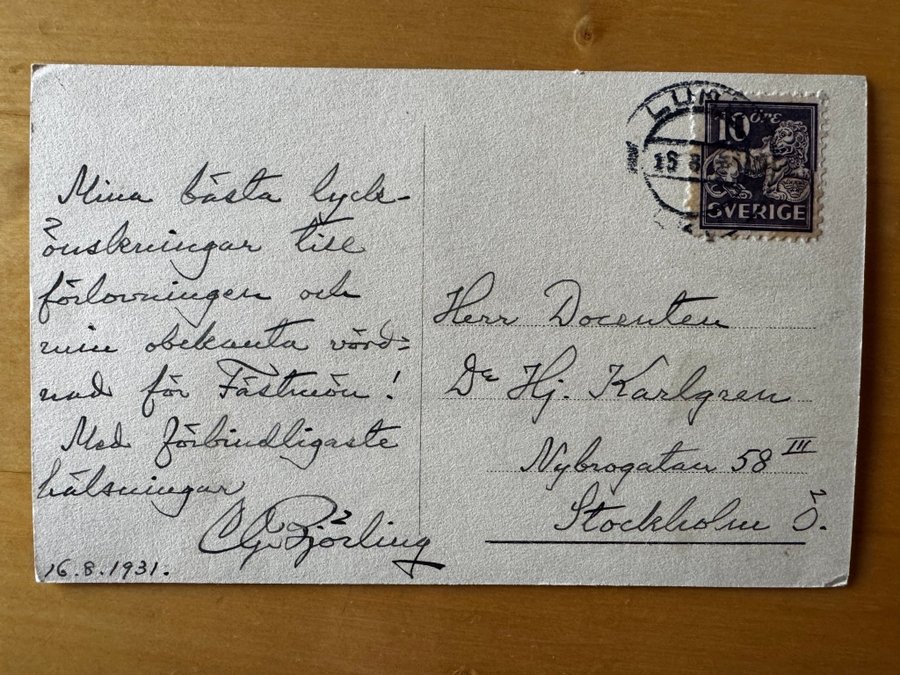 Mina bästa lyck-
önskningar till
förlovningen och
min obekanta vörd=
nad för Fästmön!
Med förbindligaste
hälsningar
CG Björling
16.8.1931.
LUND
16 8
10 ÖRE
SVERIGE
Herr Docenten
Dr Hj. Karlgren
Nybrogatan 58 III
Stockholm Ö.